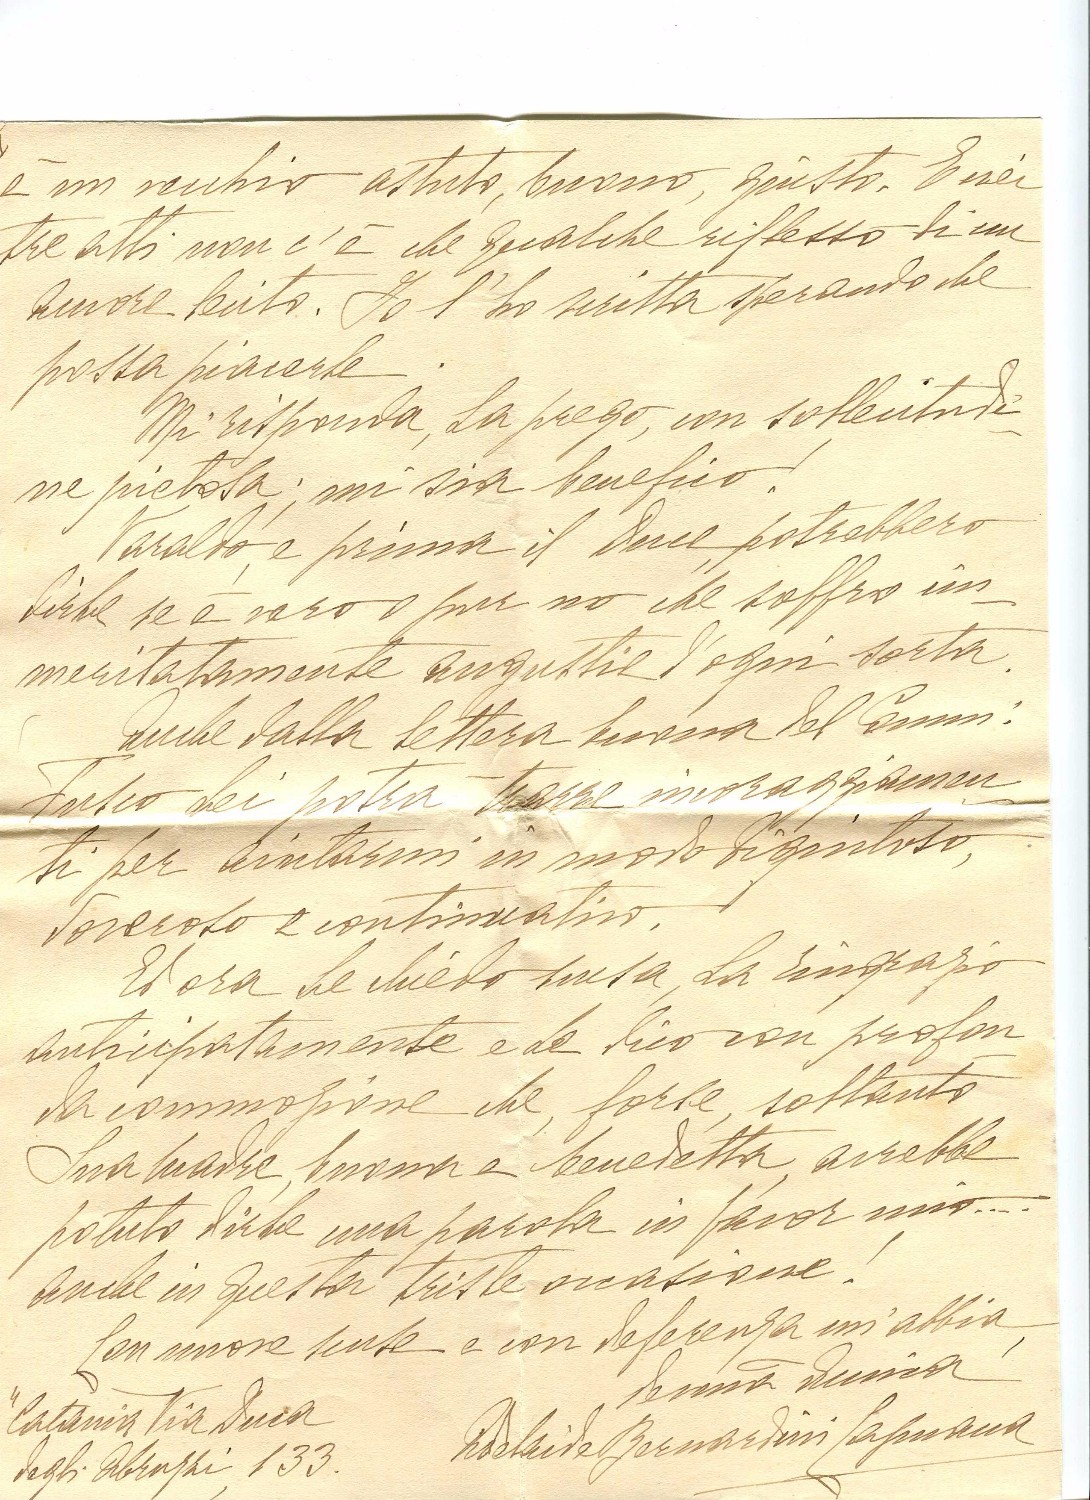 è un vecchio astuto, buono, giusto. E nei
tre atti non c'è che qualche riflesso di un
amore lento. Io l'ho scritta sperando che
possa piacerle.
Mi risponda, La prego, con sollecitudi-
ne pietosa; mi sia benefico!
Varaldo, e prima il Duce, potrebbero
dirle se è vero o pur no che soffro im-
meritatamente angustie d'ogni sorta.
Anche dalla lettera buona del Comm:
Lei potrà trarre incoraggiamen-
ti per aiutarmi in modo dignitoso,
doveroso e continuativo.
Ed ora Le chiedo scusa, La ringrazio
anticipatamente e Le dico con profon
da commozione che, forse, soltanto
Sua Madre, buona e benedetta, avrebbe
potuto dirle una parola in favor mio....
anche in questa triste occasione!
Con nuove scuse e con deferenza m'abbia,
Adelaide Bernardini Capuana
"Catania Via Duca
degli Abruzzi, 133.